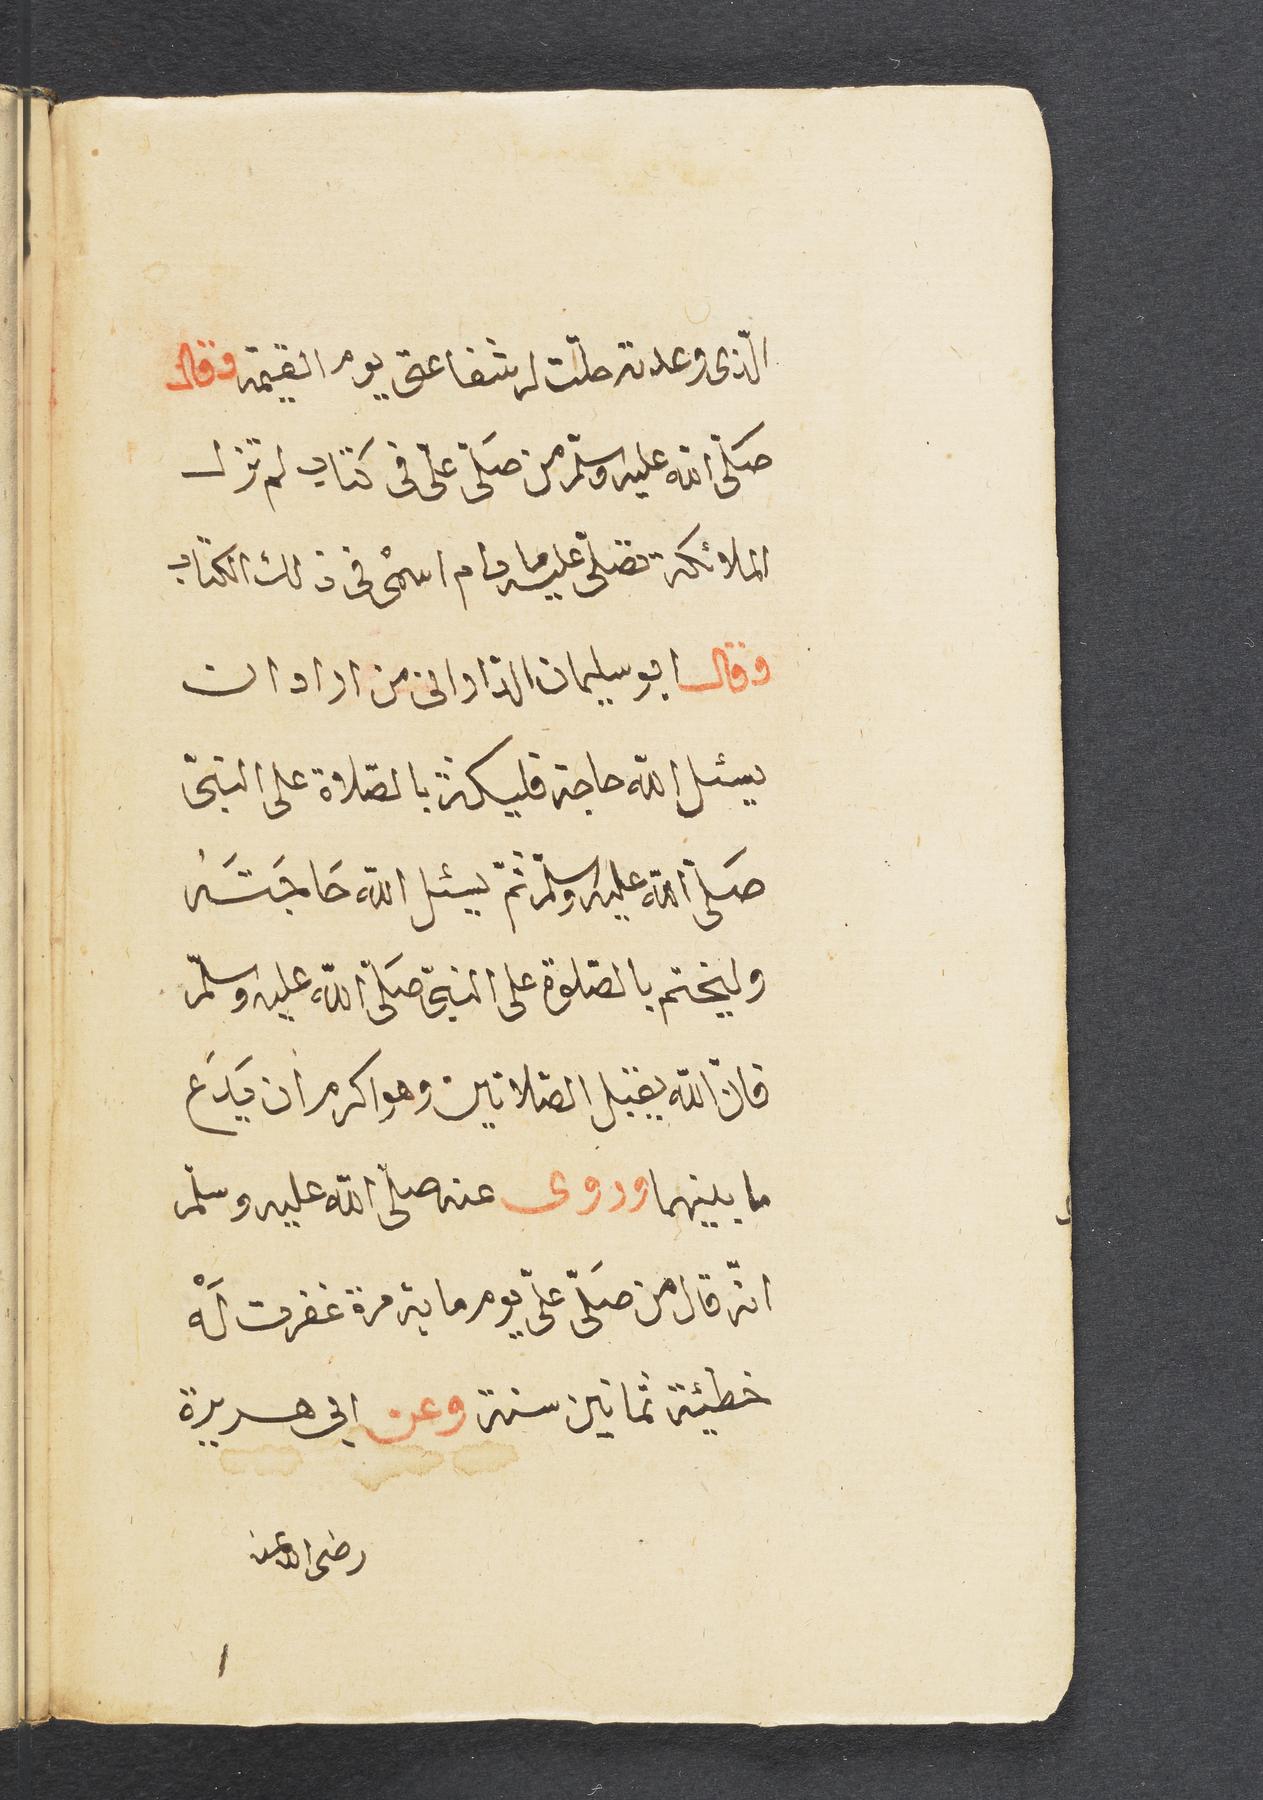 الّذى وعدته حلّت له شفاعتى يوم القيمة وقال
صَلّى الله عليه وسلّم من صَلّى علىّ فى كتاب لم تزل
الملائكة تصَلّى عليه ما دام اسمْى فى ذلك الكتاب
وقال ابو سليمان الدّارانى من اراد ان
يسئل الله حاجة فليكثر بالصّلاة على النبىّ
صَلّى الله عليه وسلّم ثمّ يسئل الله حَاجَتَهُ
وليختم بالصّلوة على النبىّ صَلّى الله عليه وسلّم
فانّ الله يقبل الصّلاتين وهو اكرم من ان يَدَع
ما بينهما وروى عنه صلّى الله عليه وسلّم
انّه قال من صَلّى علىّ يوم ماية مرة غفرت لَهْ
خطيئة ثمانين سنة وعن ابى هريرة
رضى الله عنه
١